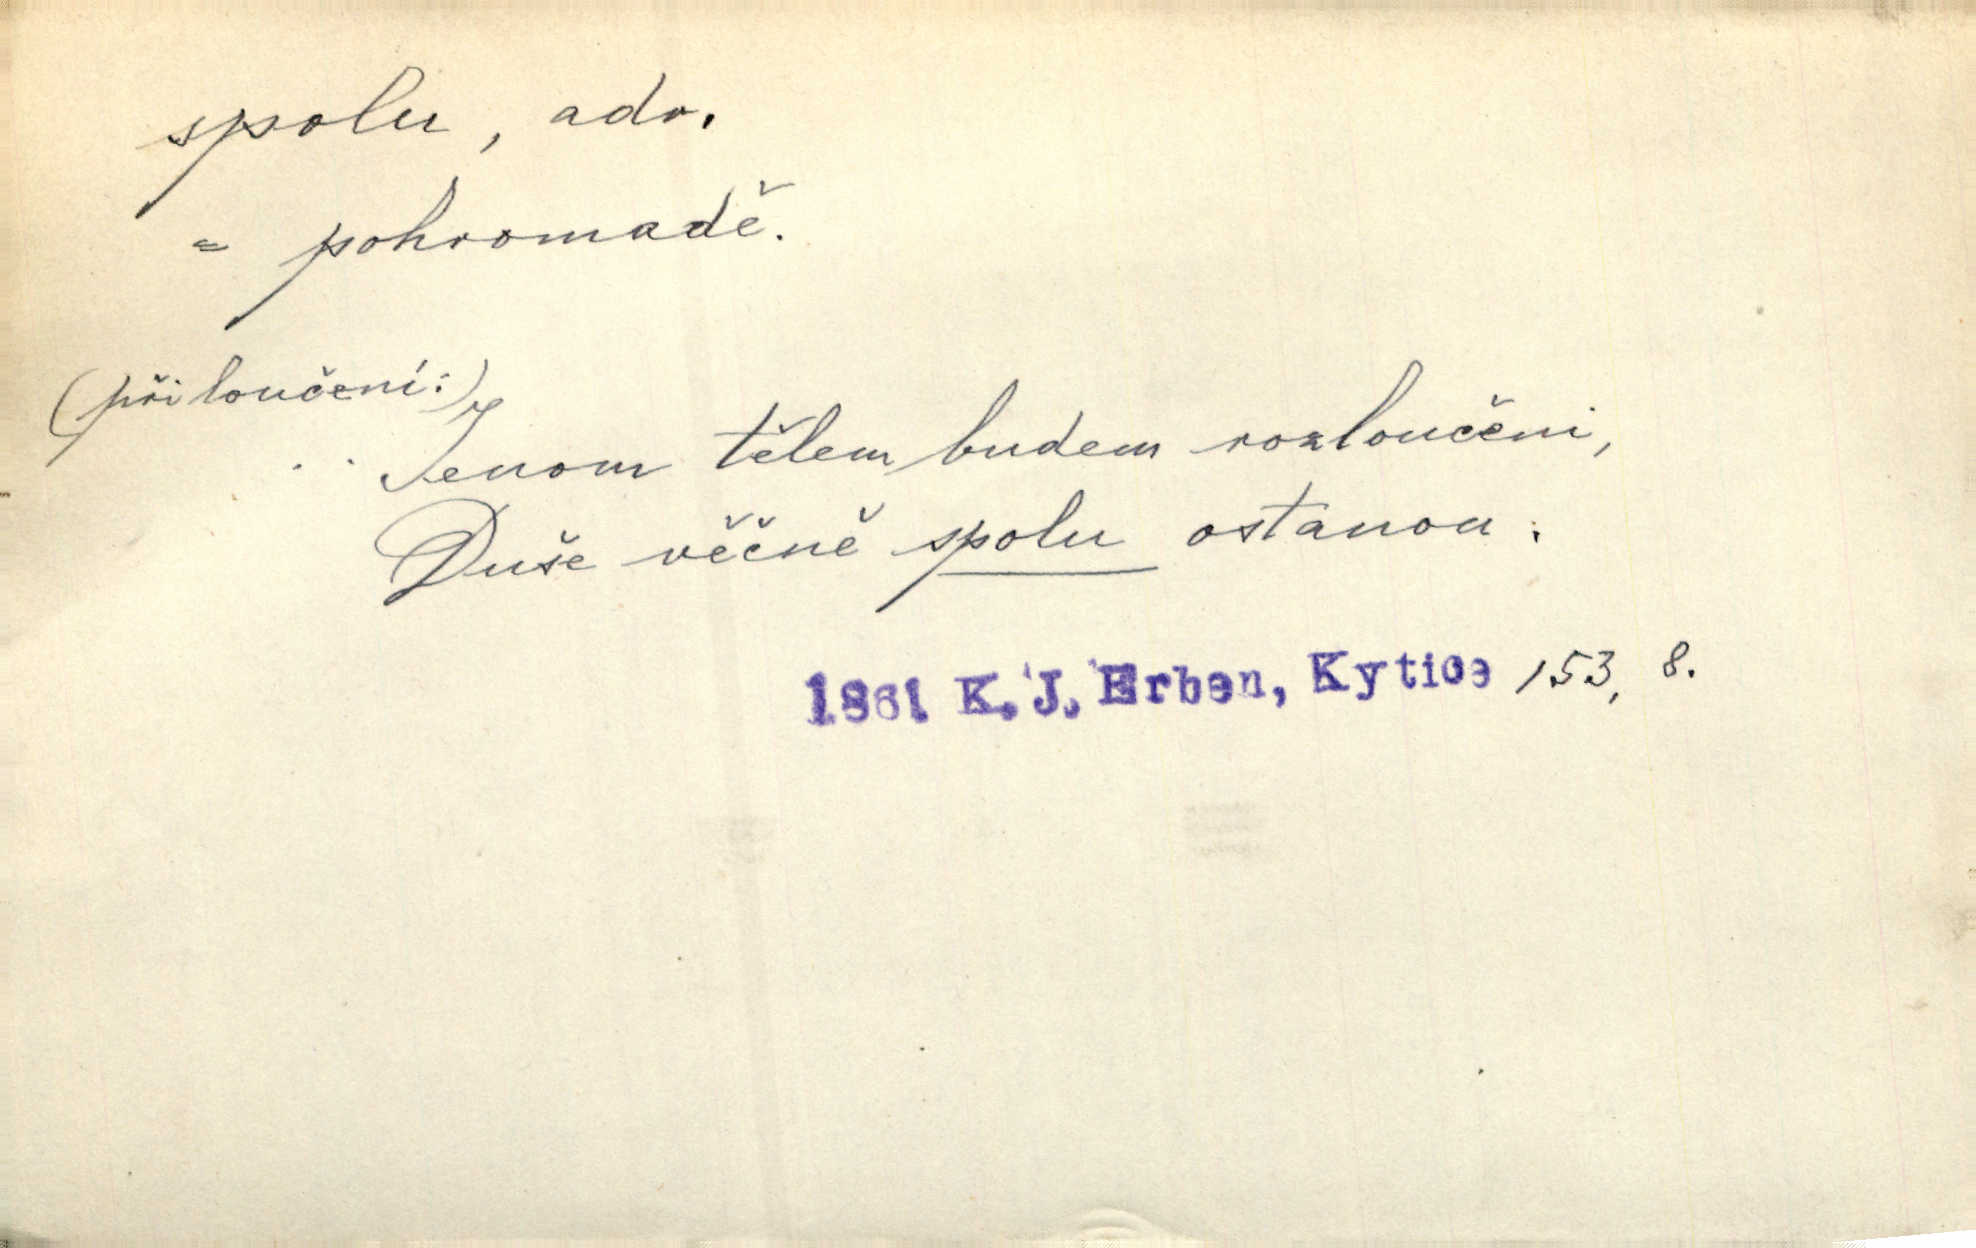 spolu, adv.
= pohromadě.
(při loučení:)
. . Jenom tělem budem rozloučeni,
Duše věčně spolu ostanou:
1861 K. J. Erben, Kytice 153, 8.